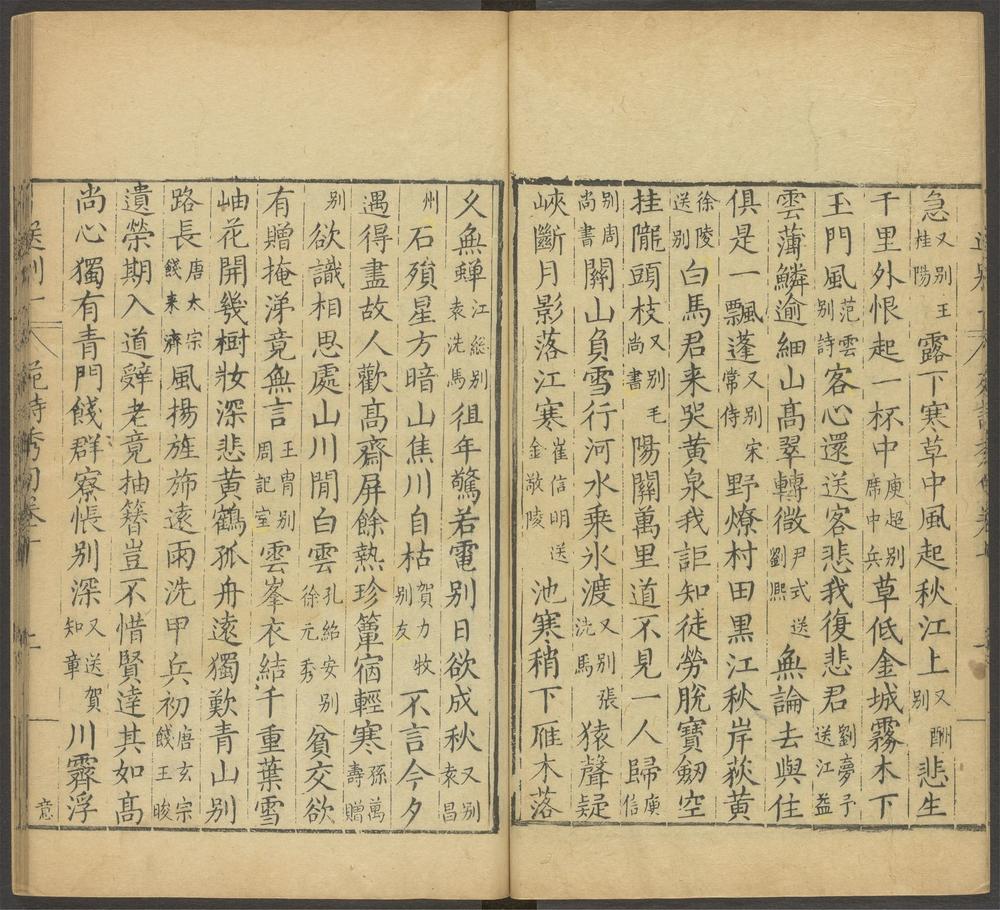 急又别王桂陽露下寒草中風起秋江上又酬别悲生
千里外恨起一杯中庾超别席中兵草低金城霧木下
玉門風范雲别詩客心還送客悲我復悲君劉夢予送江益
雲薄鱗逾細山高翠轉微尹式送劉熙無論去與住
俱是一飄蓬又别宋常侍野燎村田黒江秋岸荻黄
徐陵送别白馬君来哭黄泉我詎知徒勞脫寶劒空
挂隴頭枝又别毛尚書陽關萬里道不見一人歸庾信
别周尚書關山負雪行河水乗氷渡又别張洗馬猿聲疑
峽斷月影落江寒崔信明送金敬陵池寒稍下雁木落
久無蟬江総别袁洗馬徂年驚若電别日欲成秋又别袁昌
州石殞星方暗山焦川自枯賀力牧别友不言今夕
遇得盡故人歡高齋屏餘熱珍簟宿輕寒孫萬壽贈
别欲識相思處山川間白雲孔紹安别徐元秀貧交欲
有贈掩涕竟無言王胄别周記室雲峯衣結千重葉雪
岫花開幾樹妝深悲黄鶴孤舟遠獨歎青山别
路長唐太宗餞来濟風揚旌斾遠雨洗甲兵初唐玄宗餞王晙
遺榮期入道辭老竟抽簪豈不惜賢達其如高
尚心獨有青門餞群寮悵别深又送賀知章川霽浮
意